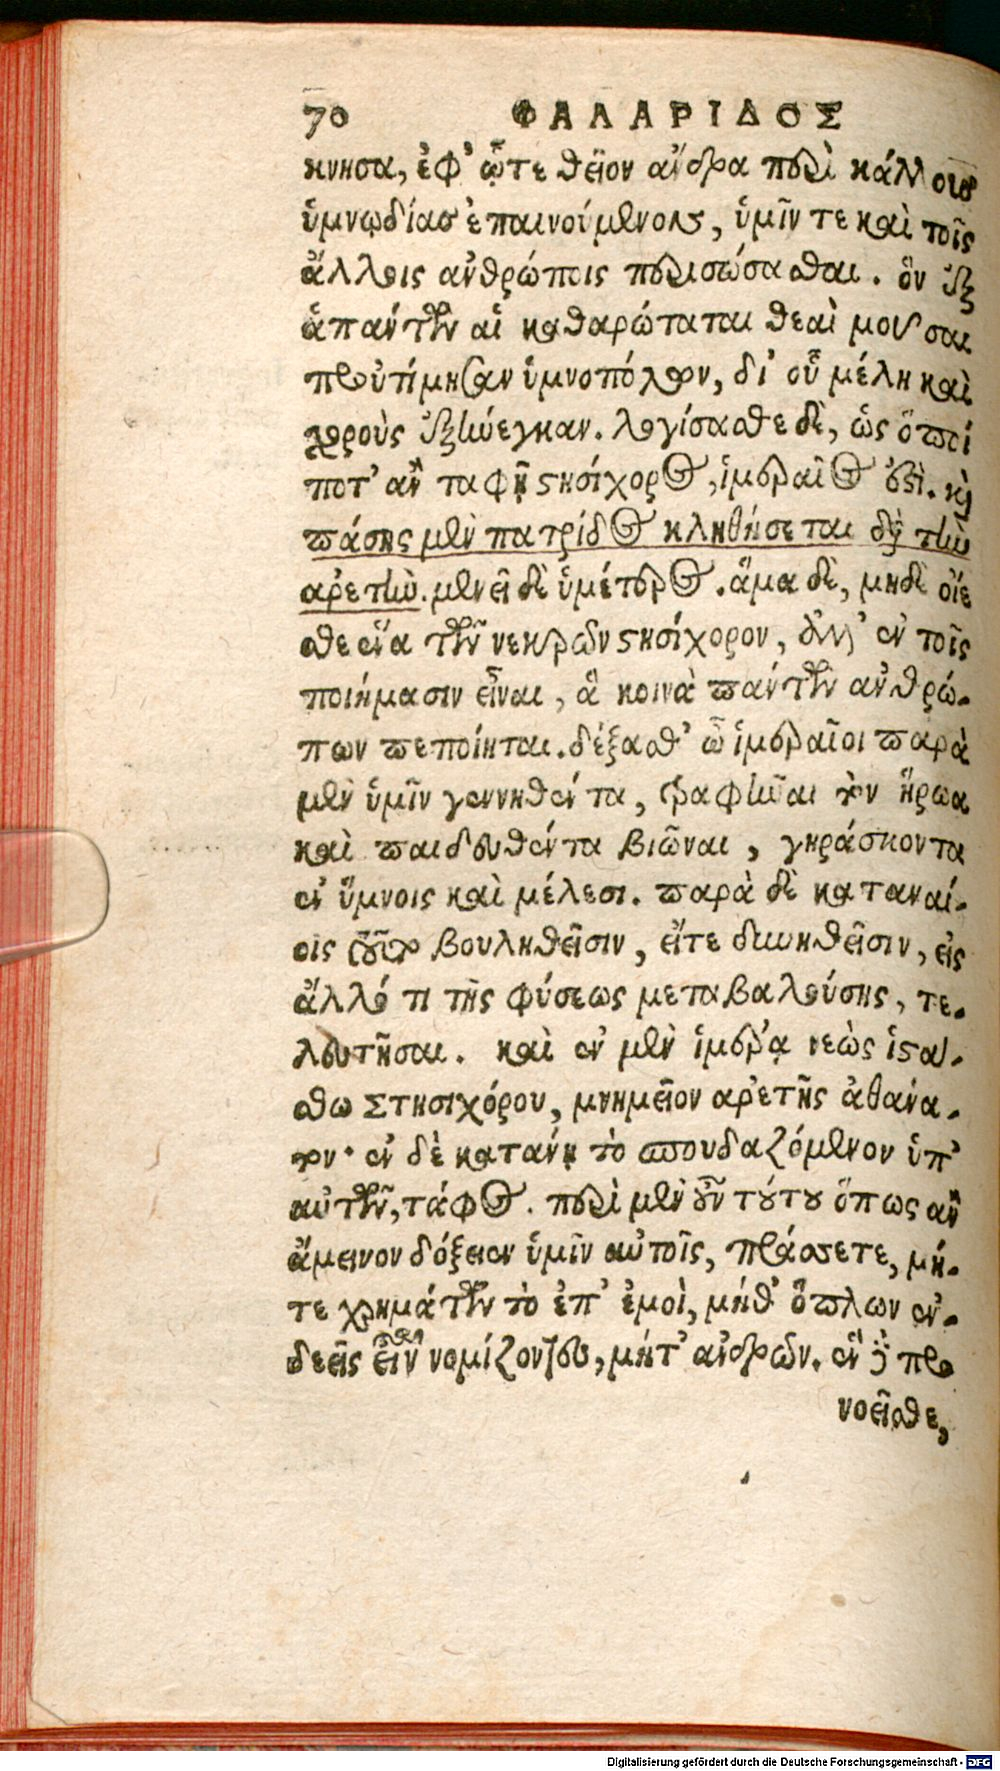 70 ΦΑΛΑΡΙΔΟΣ
κνησα, ἐφ' ᾧτε θεῖον ἄνδρα περὶ κάλλους
ὑμνῳδίας ἐπαινούμενοις, ὑμῖν τε καὶ τοῖς
ἄλλοις ἀνθρώποις περισώσασθαι. ὃν ἐξ
ἁπάντων αἱ καθαρώταται θεαὶ μοῦσαι
προὐτίμησαν ὑμνοπόλον, δι' οὗ μέλη καὶ
χοροὺς ἐξήνεγκαν. λογίσασθε δὲ, ὡς ὅποι
ποτ' ἂν ταφῇ στησίχορος, ἱμεραῖος ἐστὶ. καὶ
πάσης μὲν πατρίδος κληθήσεται διὰ τὴν
ἀρετὴν. μενεῖ δὲ ὑμέτερος. ἅμα δὲ, μηδὲ οἴε
σθε ἕνα τῶν νεκρῶν στησίχορον, ἀλλ' ἐν τοῖς
ποιήμασιν εἶναι, ἃ κοινὰ πάντων ἀνθρώ-
πων πεποίηται. δέξασθ' ὦ ἱμεραῖοι παρὰ
μὲν ὑμῖν γεννηθέντα, τραφῆναι τὸν ἥρωα
καὶ παιδευθέντα βιῶναι, γηράσκοντα
ἐν ὕμνοις καὶ μέλεσι. παρὰ δὲ καταναί-
οις τοῦτο βουληθεῖσιν, εἴτε δυνηθεῖσιν, εἰς
ἄλλό τι τῆς φύσεως μεταβαλούσης, τε-
λευτῆσαι. καὶ ἐν μὲν ἱμέρᾳ νεὼς ἱστά-
σθω Στησιχόρου, μνημεῖον ἀρετῆς ἀθάνα-
τον· ἐν δὲ κατάνῃ τὸ σπουδαζόμενον ὑπ'
αὐτῶν, τάφος. περὶ μὲν οὖν τούτου ὅπως ἂν
ἄμεινον δόξειεν ὑμῖν αὐτοῖς, πράσσετε, μή-
τε χρημάτων τὸ ἐπ' ἐμοὶ, μήθ' ὅπλων ἐν-
δεεῖς εἶναι νομίζοντες, μήτ' ἀνδρῶν. ἓν προ
νοεῖσθε,
Digitalisierung gefördert durch die Deutsche Forschungsgemeinschaft - DFG